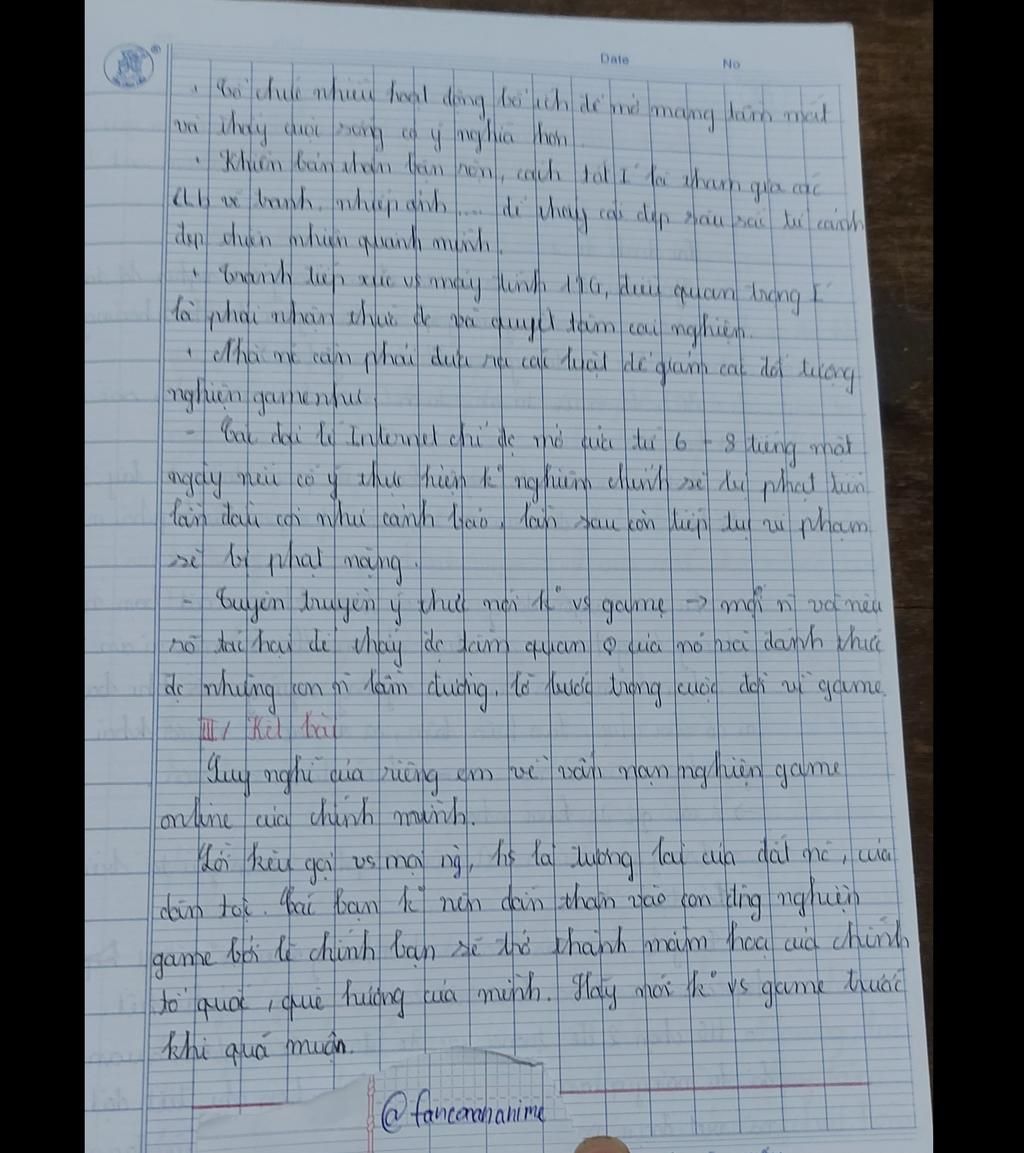 Date No
. Tổ chức nhiều hoạt động bổ ích để mở mang tầm mắt
và thấy cuộc sống có ý nghĩa hơn
. Khiến bản thân bận rộn, cách tốt I là tham gia các
CLB vẽ tranh, nhiếp ảnh .... để thấy cái đẹp sâu sắc từ cảnh
đẹp thiên nhiên quanh mình.
. Tránh tiếp xúc vs máy tính, điều quan trọng I
là phải nhận thức đc và quyết tâm cai nghiện.
. Nhà nc cần phải đưa ra các luật để giành các đối tượng
nghiện game như
- Các đại lí Internet chỉ đc mở cửa từ 6 - 8 tiếng một
ngày nếu cố ý thực hiện k nghiêm chỉnh sẽ bị phạt tiền
lần đầu coi như cảnh cáo, lần sau còn tiếp tục vi phạm
sẽ bị phạt nặng.
- Tuyên truyền ý thức nói k° vs game → mọi n và nêu
rõ tác hại để thấy đc tầm quan φ của nó và đánh thức
đc những con n lầm đường, lỡ bước trong cuộc đời vì game
III/ Kết bài
Suy nghĩ của riêng em về vấn nạn nghiện game
online của chính mình.
Lời kêu gọi vs mọi ng, hs là tương lai của đất nc, của
dân tộc. Các bạn k° nên dấn thân vào con đng nghiện
game bởi lẽ chính bạn sẽ trở thành mầm họa của chính
tổ quốc, quê hương của mình. Hãy nói k° vs game trước
khi quá muộn.
@fanconanhanime